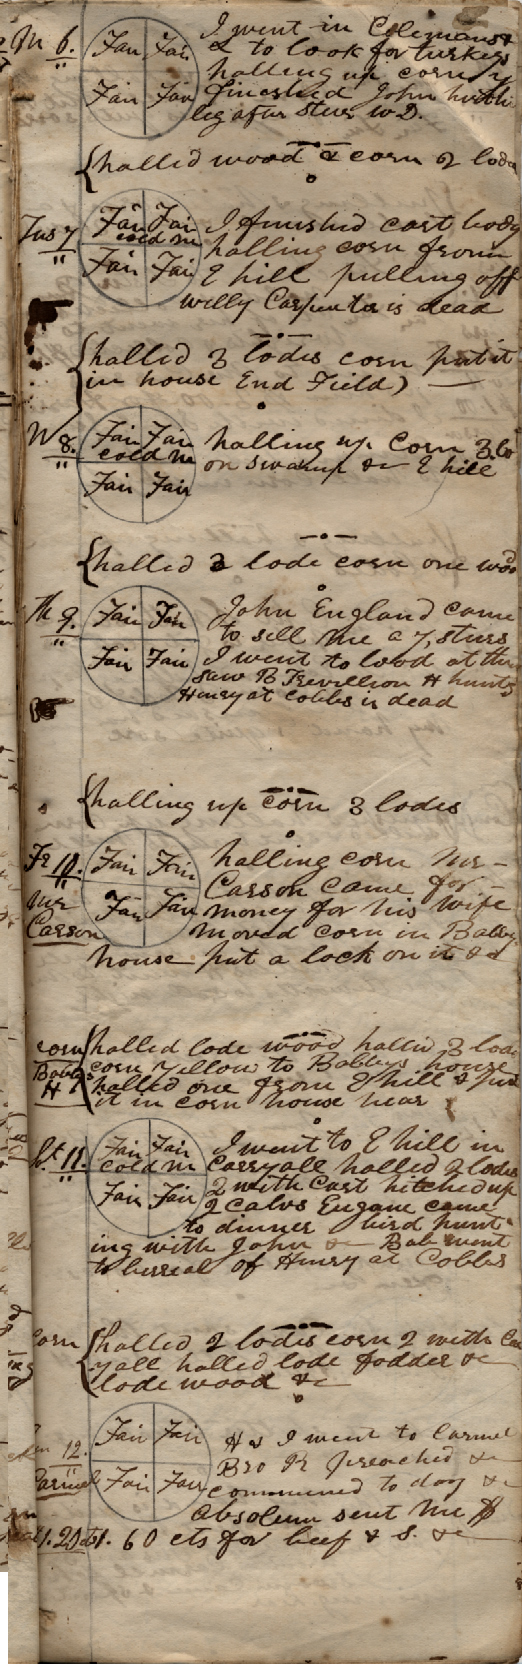 M 6. Fair Fair I went in Colemans &
& to look for turkeys
halling up corn
Fair Fair finished John
leg after stears W.D.
{halled wood & corn 2 lode
Tus 7 Fair Fair I finished cart body
cold m halling corn from
Fair Fair E hill pulling off
willy Carpenter is dead
{halled 3 lodes corn put it
in house End Field)
W 8. Fair Fair halling up Corn 3 lo
cold m on swamp & E hill
Fair Fair
{halled 2 lode corn one woo
Th 9. Fair Fair John England came
to sell me a 7, stears
Fair Fair I went to lood at the
saw B Trevillion H hunts
Henry at Cobbs is dead
{halling up corn 3 lodes
Fr 10. Fair Fair halling corn Mr
Mr Carson came for
Carson Fair Fair money for his wife
moved corn in Babbys
house put a lock on it &
corn {halled lode wood halled 3 loa
Babbys corn yellow to Babbys house
H halled one from E hill & put
it in corn house near
St 11. Fair Fair I went to E hill in
cold m Carryall halled 2 lodes
Fair Fair 2 with Cart hitched up
2 Calvs Eugane came
to dinner bird hunt
ing with John & Bab went
to burreal of Henry at Cobbs
Corn {halled 2 lodes corn 2 with Ca
yall halled lode fodder &
lode wood &
12. Fair Fair H & I went to Carmel
Bro R preached &
Carmel Fair Fair communed to day &
Absolum sent me $
1.20 1.60 cts for beef & S. &